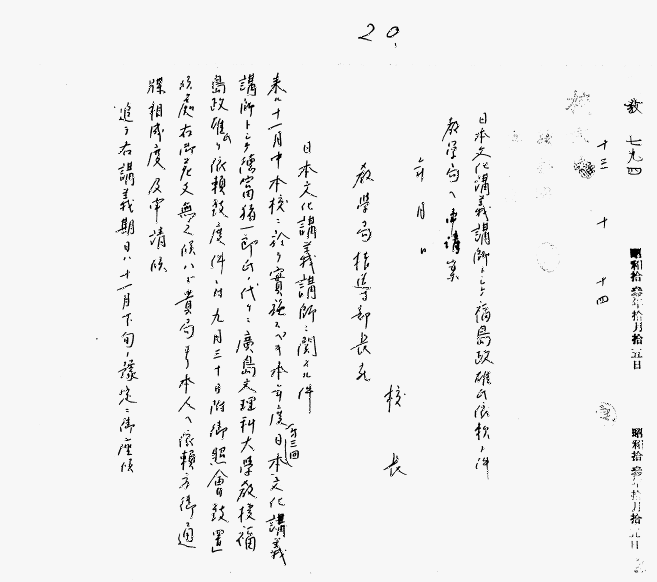 20.
教 七九四
十三 十 十四
昭和拾参年拾月拾五日
昭和拾参年拾月拾五日
日本文化講義講師トシテ福島政雄氏依頼ノ件
教学局ヘ申請案
年 月 日
教學局指導部長宛
校 長
日本文化講義講師ニ関スル件
来ル十一月中本校ニ於テ實施スベキ本年度第三回日本文化講義
講師トシテ德富猪一郎氏ノ代リニ廣島文理科大學教授福
島政雄氏ヲ依頼致度件ニ付九月三十日附御照會致置
候處右御差支無之候ハバ貴局ヨリ本人ヘ依頼方御通
牒相成度及申請候
追テ右講義期日ハ十一月下旬ノ豫定ニ御座候